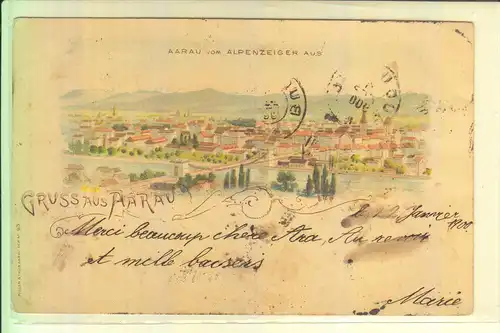 AARAU VOM ALPENZEIGER AUS
GRUSS AUS AARAU
Januar
1900
Merci beaucoup chère Ara, Au revoir
et mille baisers
Marie